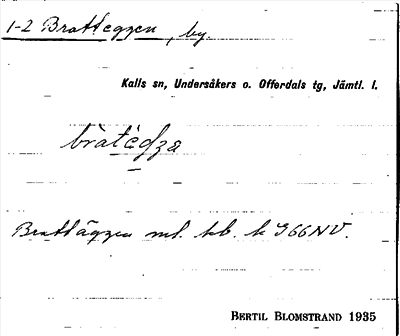 1-2 Bratteggen, by.
Kalls sn, Undersåkers o. Offerdals tg, Jämtl. l.
Brattäggen ml. kb. k 366NV.
BERTIL BLOMSTRAND 1935